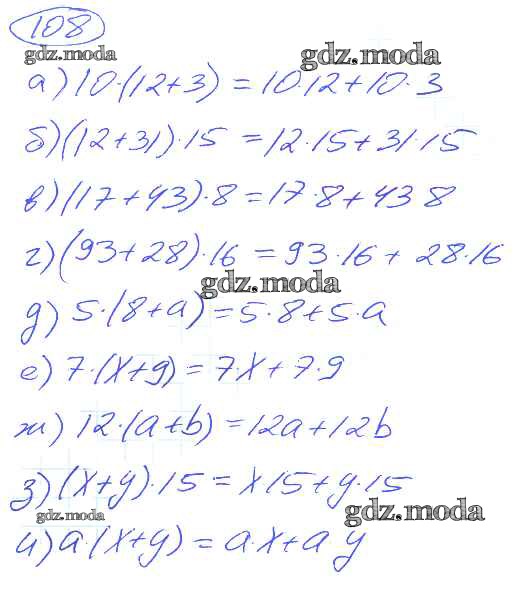 108
gdz.moda
gdz.moda
а) 10·(12+3) = 10·12+10·3
б) (12+31)·15 = 12·15+31·15
в) (17+43)·8 = 17·8+43 8
г) (93+28)·16 = 93·16+ 28·16
gdz.moda
д) 5·(8+a) = 5·8+5·a
е) 7·(x+9) = 7·x+7·9
ж) 12·(a+b) = 12a+12b
з) (x+y)·15 = x15+y·15
gdz.moda
gdz.moda
и) a·(x+y) = a·x+a y